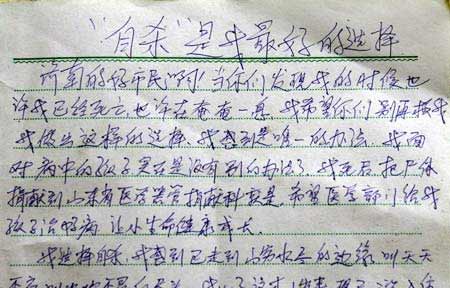 “自杀”是我最好的选择
济南的好市民哟!当你们发现我的时候也
许我已经死亡也许在奄奄一息,我希望你们别再救我
我做出这样的选择、我感到是唯一的办法、我面
对病中的孩子实在是没有别的办法了、我死后把尸体
捐献到山东省医学 捐献科 、希望医学部门给我
孩子治好病 让小生命健康成长、
我选择自杀、我感到已走到山穷水尽的边缘 叫天天
不应